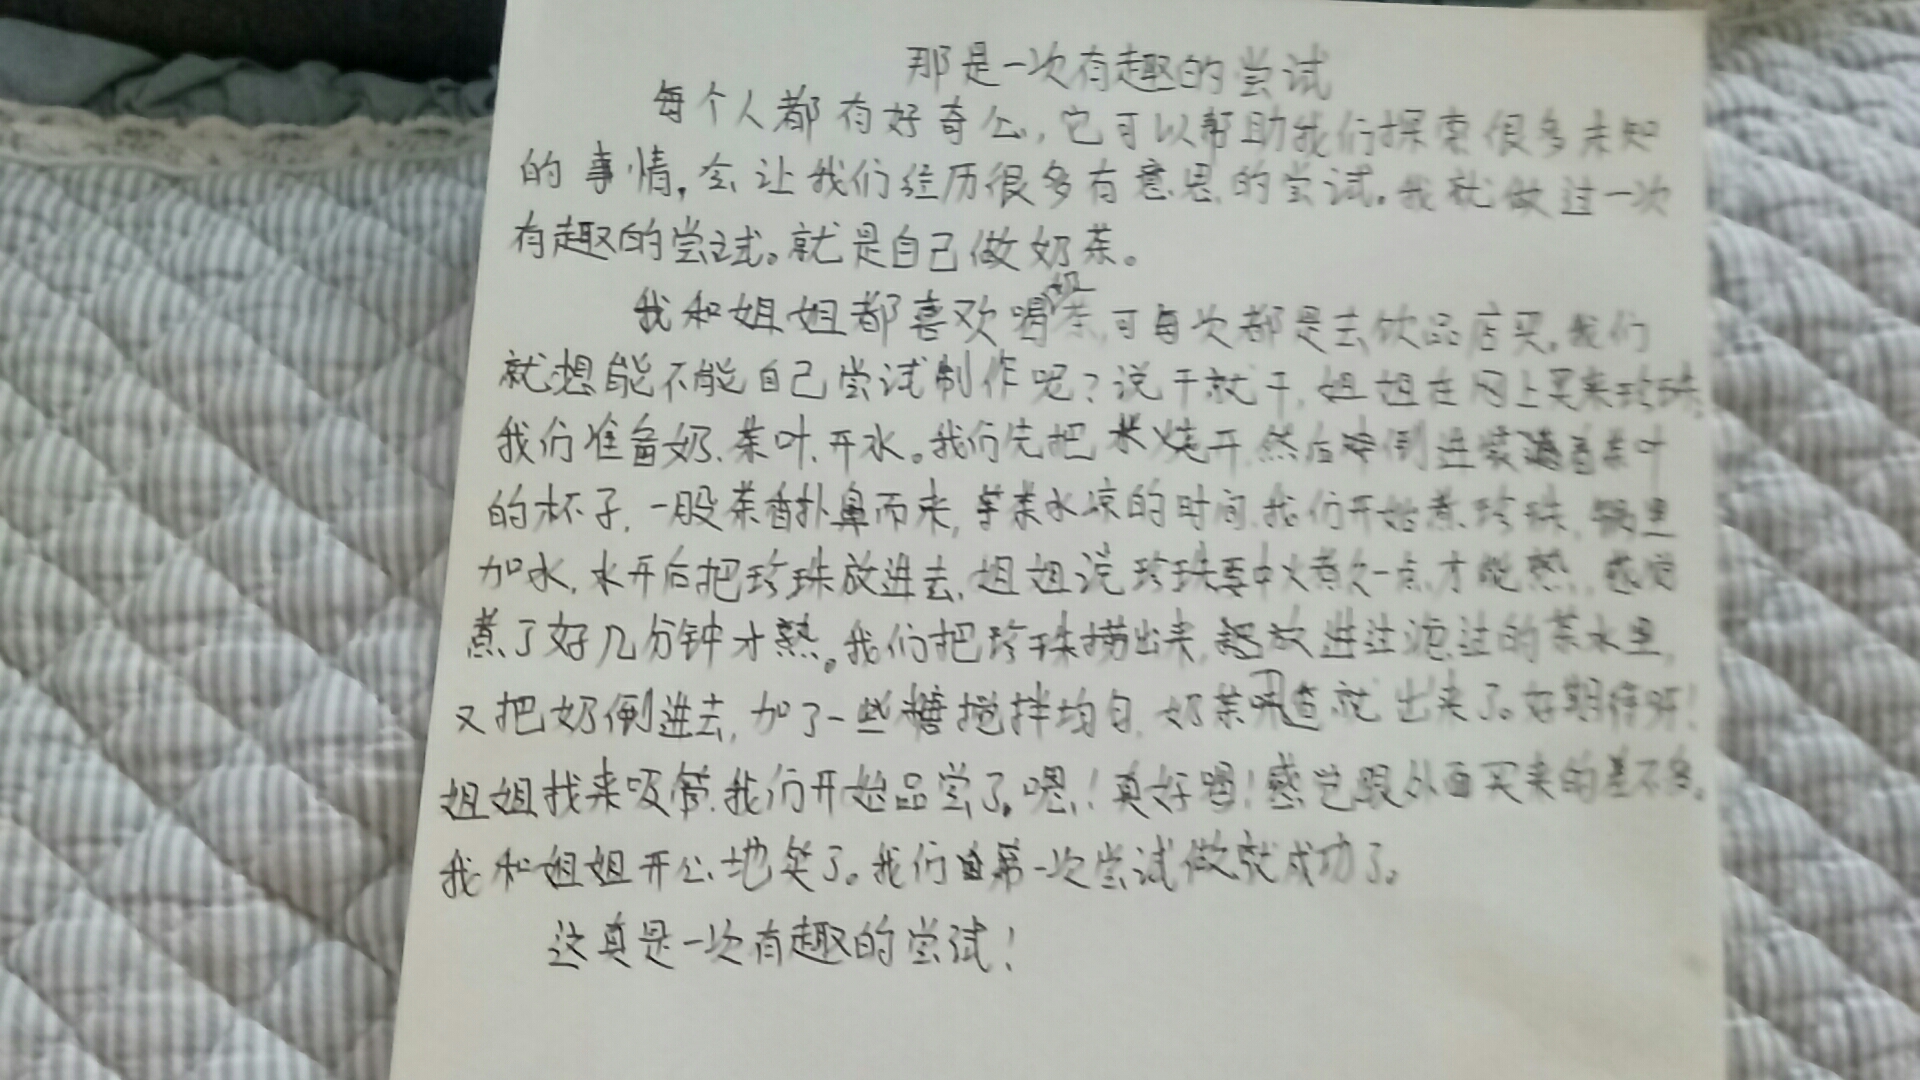 那是一次有趣的尝试
每个人都有好奇心,它可以帮助我们探索很多未知
的事情,会让我们经历很多有意思的尝试。我就做过一次
有趣的尝试。就是自己做奶茶。
我和姐姐都喜欢喝奶茶,可每次都是去饮品店买,我们
就想能不能自己尝试制作呢?说干就干,姐姐在网上买来珍珠,
我们准备奶、茶叶、开水。我们先把水烧开,然后倒进装着茶叶
的杯子,一股茶香扑鼻而来,等茶水凉的时间,我们开始煮珍珠,锅里
加水,水开后把珍珠放进去,姐姐说珍珠要中火煮久一点,才能熟,感觉
煮了好几分钟才熟。我们把珍珠捞出来,放进过滤过的茶水里,
又把奶倒进去,加了一些糖搅拌均匀,奶茶就出来了。好期待呀!
姐姐找来吸管,我们开始品尝了。嗯!真好喝!感觉跟外面买来的差不多。
我和姐姐开心地笑了。我们第一次尝试做就成功了。
这真是一次有趣的尝试!